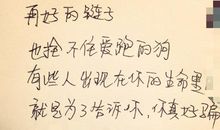 再好的链子
也拴不住爱跑的狗
有些人出现在你的生命里
就是为了告诉你,你真好骗